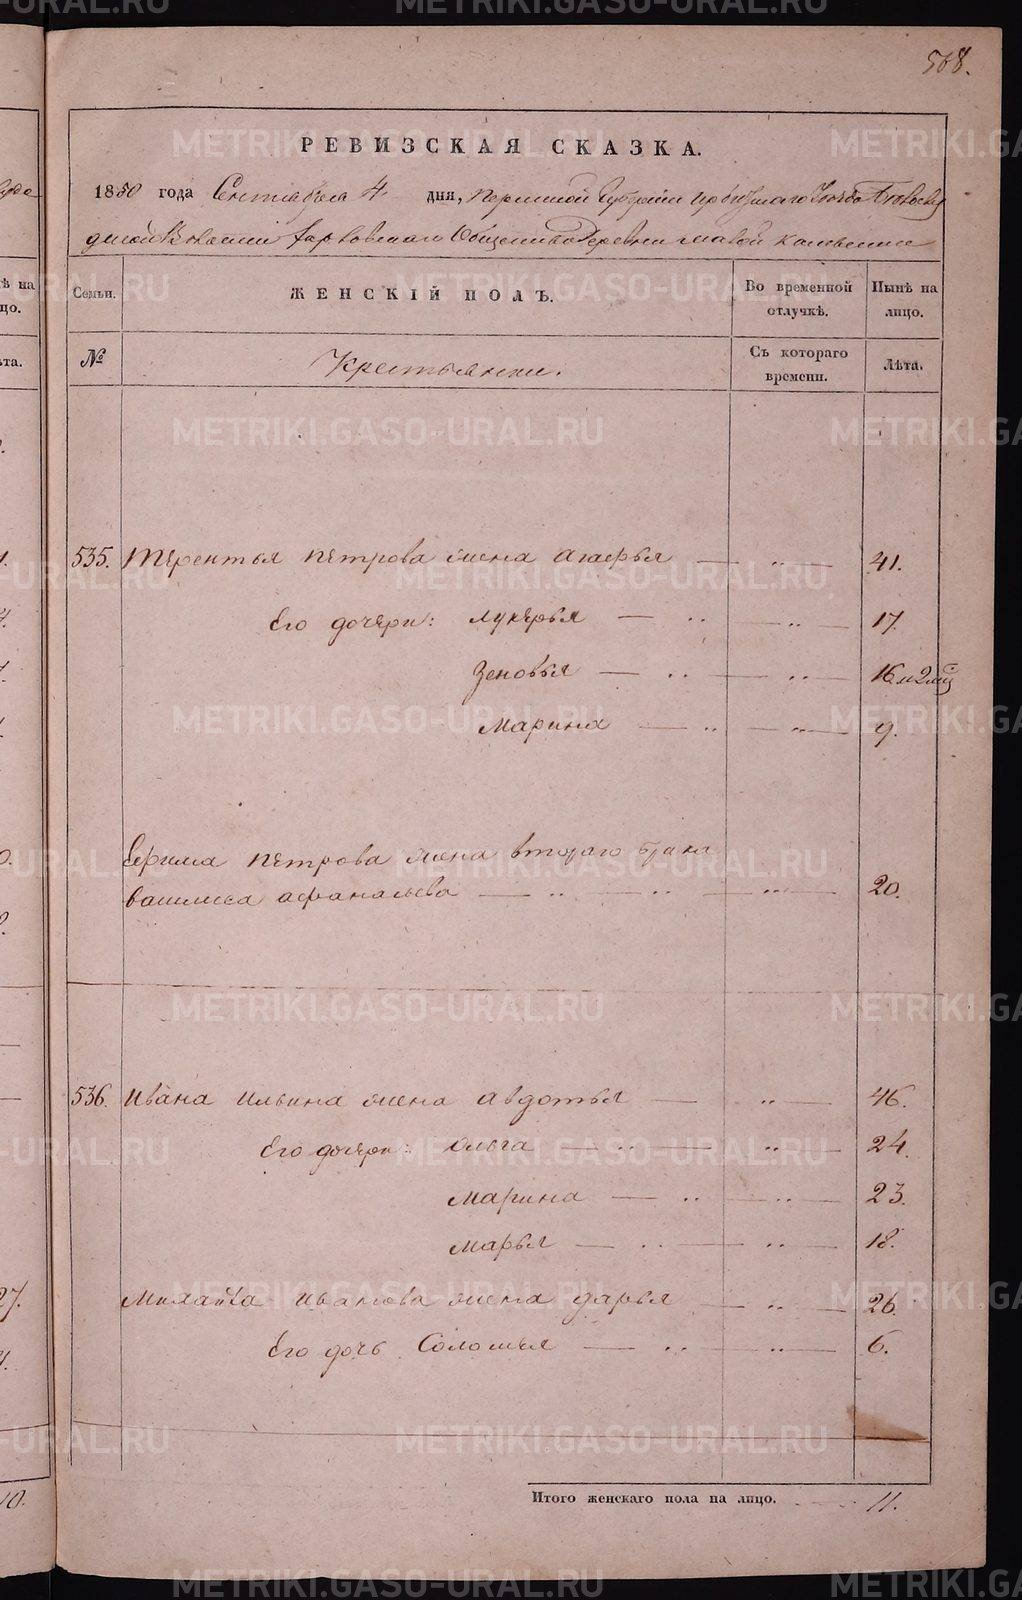 568.
РЕВИЗСКАЯ СКАЗКА.
1850 года Сентября 4 дня, Пермской Губернии Ирбитскаго
деревни Каменки
Семьи. ЖЕНСКІЙ ПОЛЪ. Во временной отлучкѣ. Нынѣ на лицо.
№ Крестьянки. Съ котораго времени. Лѣта.
535. Терентья Петрова жена Агафья — " — 41.
Его дочери: Лукерья — " — " — 17.
Зеновья — " — " — 16 и 2 мц
Марина — " — " — 9.
Ефима Петрова жена втораго брака
Василиса Афанасьева — " — " — " — 20.
536. Ивана Ильина жена Авдотья — " — 46.
Его дочери: Ольга — " — " — 24.
Марина — " — " — 23.
Марья — " — " — 18.
Михайла Иванова жена Дарья — " — 26.
Его дочь Соломья — " — " — 6.
Итого женскаго пола на лицо. 11.
METRIKI.GASO-URAL.RU